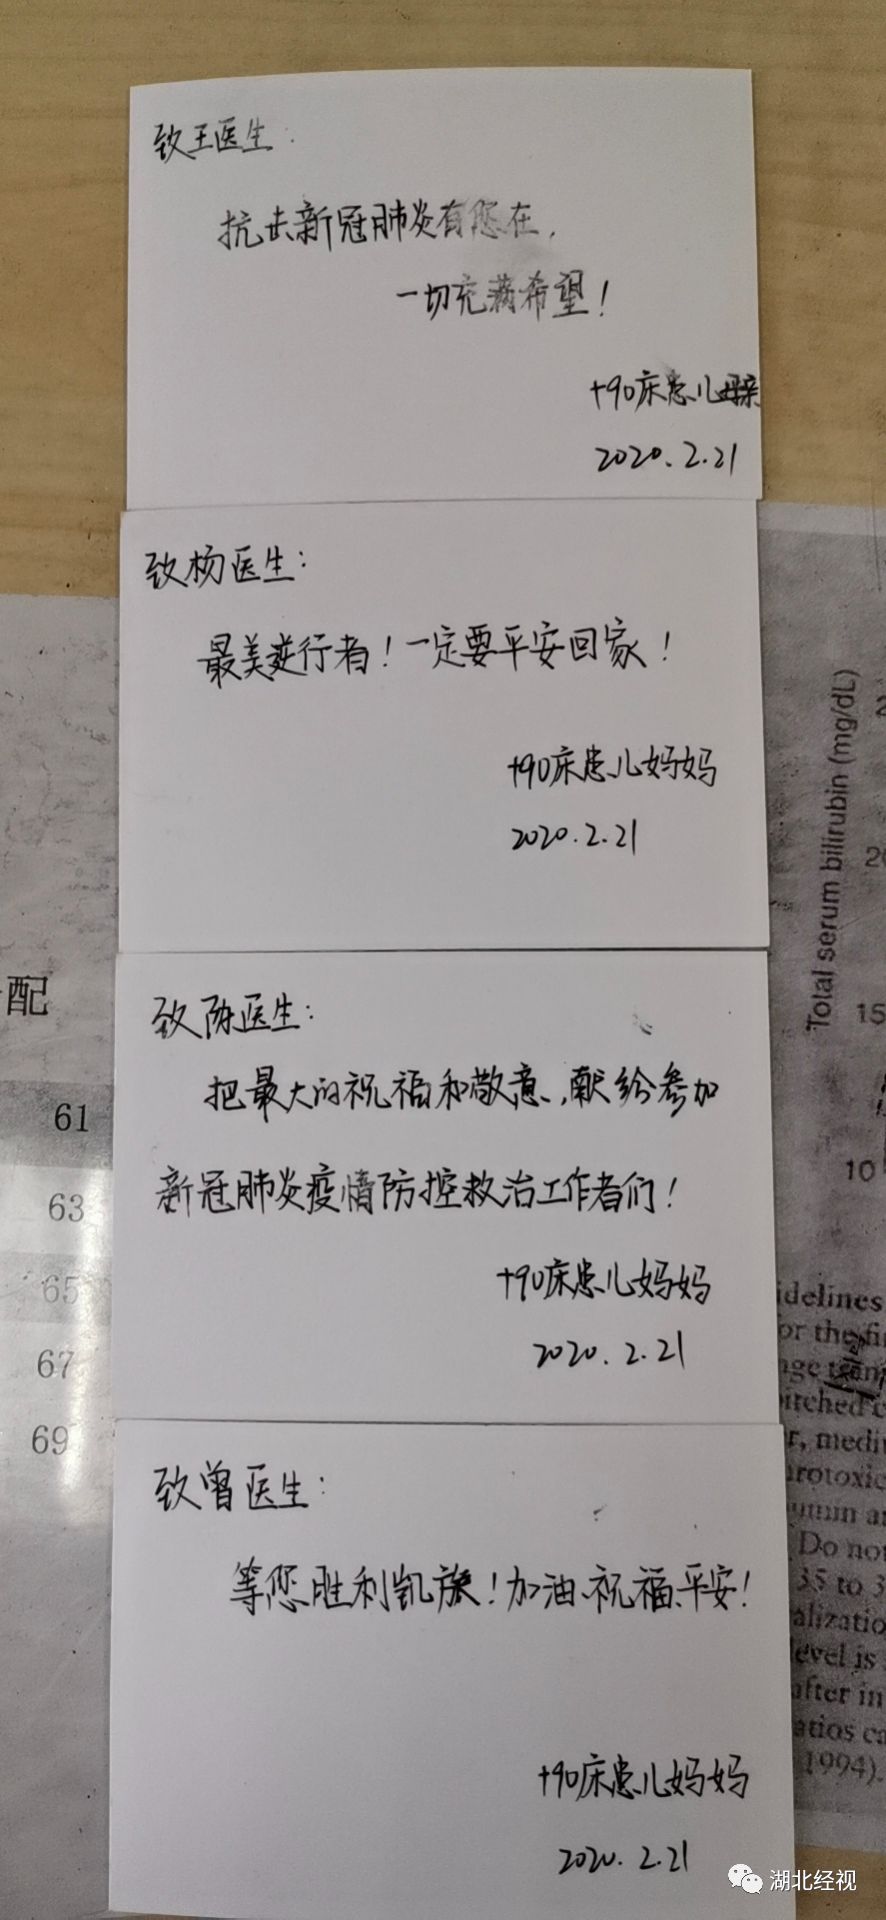 致王医生：
抗击新冠肺炎有您在，
一切充满希望！
+90床患儿母亲
2020.2.21
致杨医生：
最美逆行者！一定要平安回家！
+90床患儿妈妈
2020.2.21
致陈医生：
把最大的祝福和敬意，献给参加
新冠肺炎疫情防控救治工作者们！
+90床患儿妈妈
2020.2.21
致曾医生：
等您胜利凯旋！加油、祝福、平安！
+90床患儿妈妈
2020.2.21
配
61
63
65
67
69
Total serum bilirubin (mg/dL)
2
20
15
10
idelines
or the fi
nge tran
itched c
r, medi
urotoxic
utum a
Do no
35 to 3
alizatio
level is
after in
atios ca
1994).
湖北经视